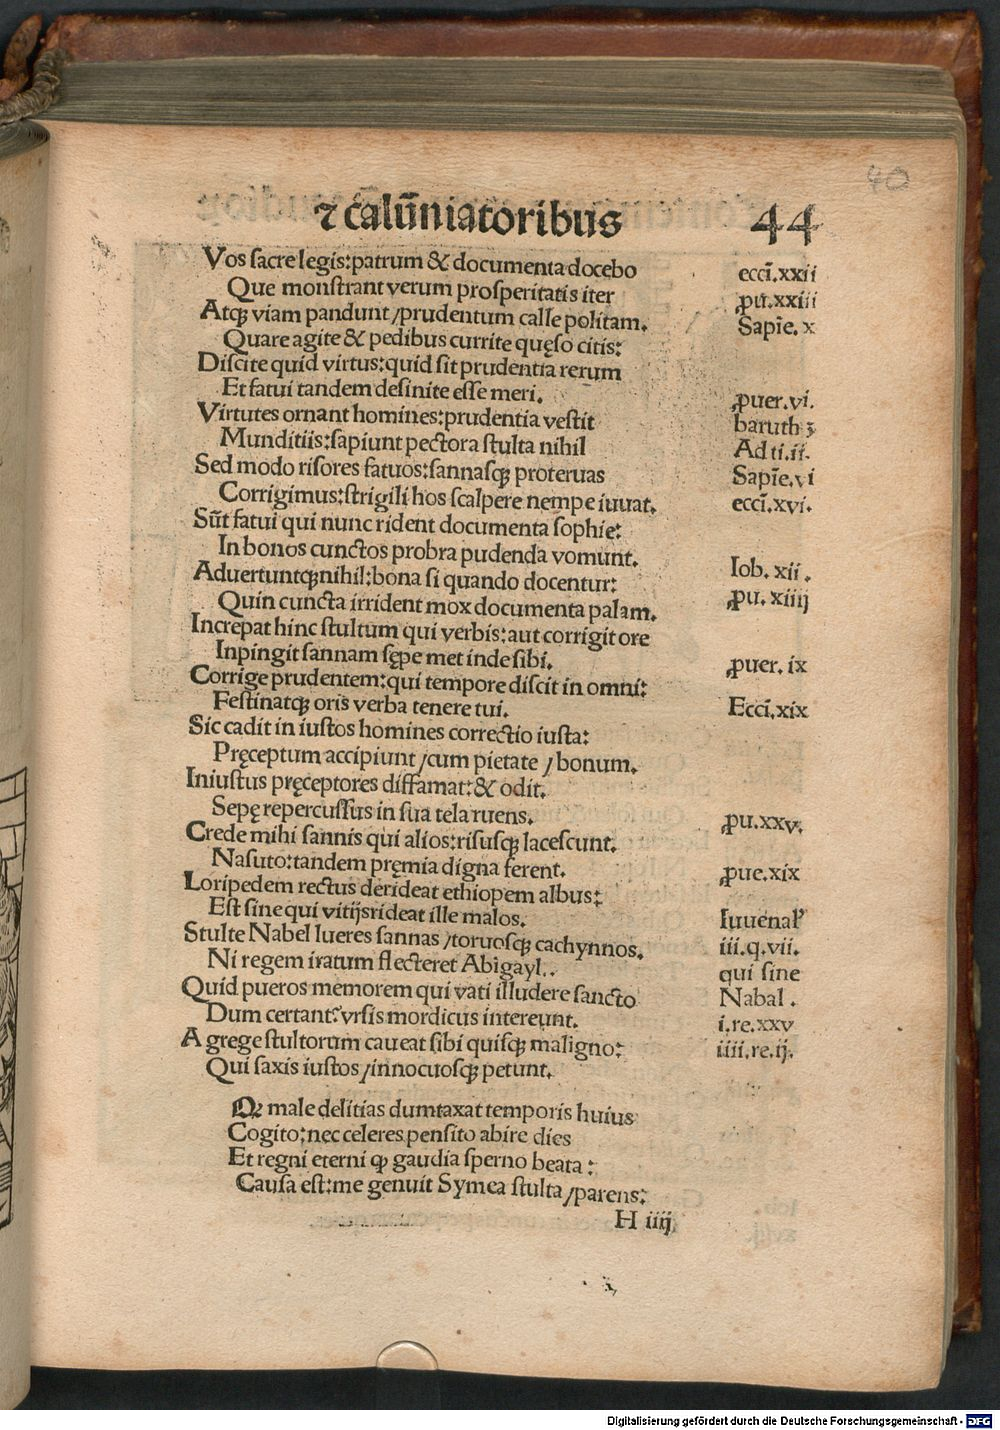 40
⁊ calūniatoribus 44
Vos sacre legis: patrum & documenta docebo eccī. xxii
Que monstrant verum prosperitatis iter ꝓu. xxiii
Atqꝫ viam pandunt / prudentum calle politam. Sapīe. x
Quare agite & pedibus currite quęso citis:
Discite quid virtus: quid sit prudentia rerum
Et fatui tandem desinite esse meri. ꝓuer. vi.
Virtutes ornant homines: prudentia vestit baruth ꝫ
Munditiis: sapiunt pectora stulta nihil Ad ti. ii.
Sed modo risores fatuos: sannasqꝫ proteruas Sapīe. vi
Corrigimus: strigili hos scalpere nempe iuuat. eccī. xvi.
Sūt fatui qui nunc rident documenta sophie:
In bonos cunctos probra pudenda vomunt.
Aduertuntqꝫ nihil: bona si quando docentur: Iob. xii.
Quin cuncta irrident mox documenta palam. ꝓu. xiiij
Increpat hinc stultum qui verbis: aut corrigit ore
Inpingit sannam sępe met inde sibi. ꝓuer. ix
Corrige prudentem: qui tempore discit in omni:
Festinatqꝫ oris verba tenere tui. Eccī. xix
Sic cadit in iustos homines correctio iusta:
Pręceptum accipiunt / cum pietate / bonum.
Iniustus pręceptores diffamat: & odit.
Sepę repercussus in sua tela ruens. ꝓu. xxv.
Crede mihi sannis qui alios: risusqꝫ lacescunt.
Nasuto: tandem pręmia digna ferent. ꝓue. xix
Loripedem rectus derideat ethiopem albus:
Est sine qui vitijs rideat ille malos. Iuuenal'
Stulte Nabel lueres sannas / toruosqꝫ cachynnos. iii. q. vii.
Ni regem iratum flecteret Abigayl. qui sine
Quid pueros memorem qui vati illudere sancto Nabal.
Dum certant: vrsis mordicus intereunt. i. re. xxv
A grege stultorum caueat sibi quisqꝫ maligno: iiii. re. ij.
Qui saxis iustos / innocuosqꝫ petunt.
Qꝫ male delitias dumtaxat temporis huius
Cogito: nec celeres pensito abire dies
Et regni eterni ꝙ gaudia sperno beata:
Causa est: me genuit Symea stulta / parens:
H iiij
Digitalisierung gefördert durch die Deutsche Forschungsgemeinschaft - DFG